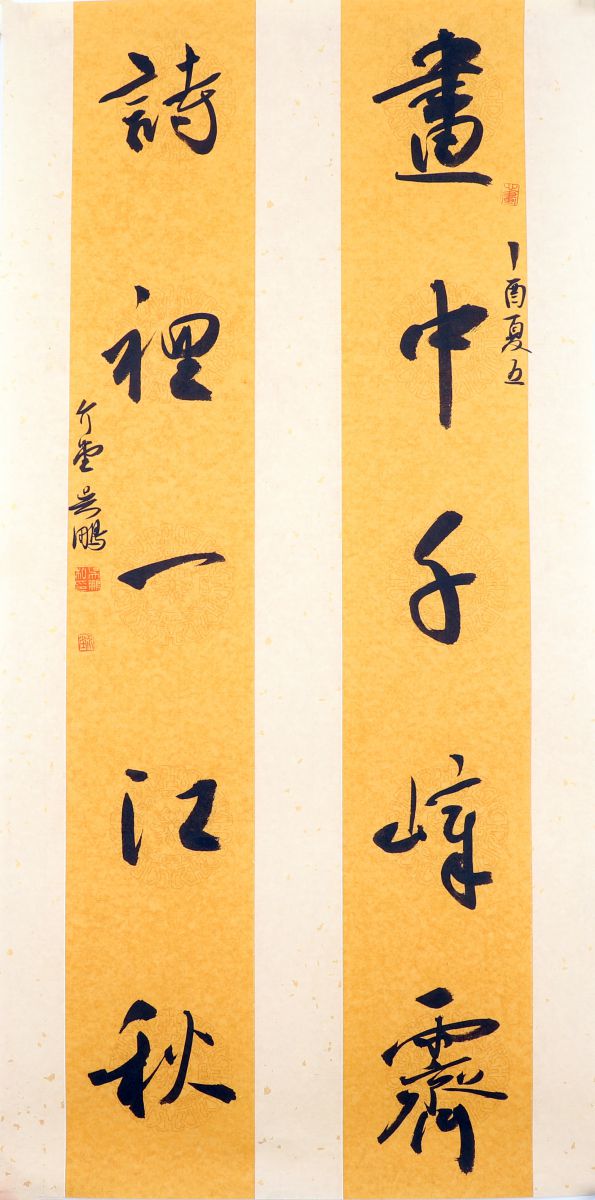 丁酉夏五
畫中千嶂霽
詩裡一江秋
介堂吴鵬